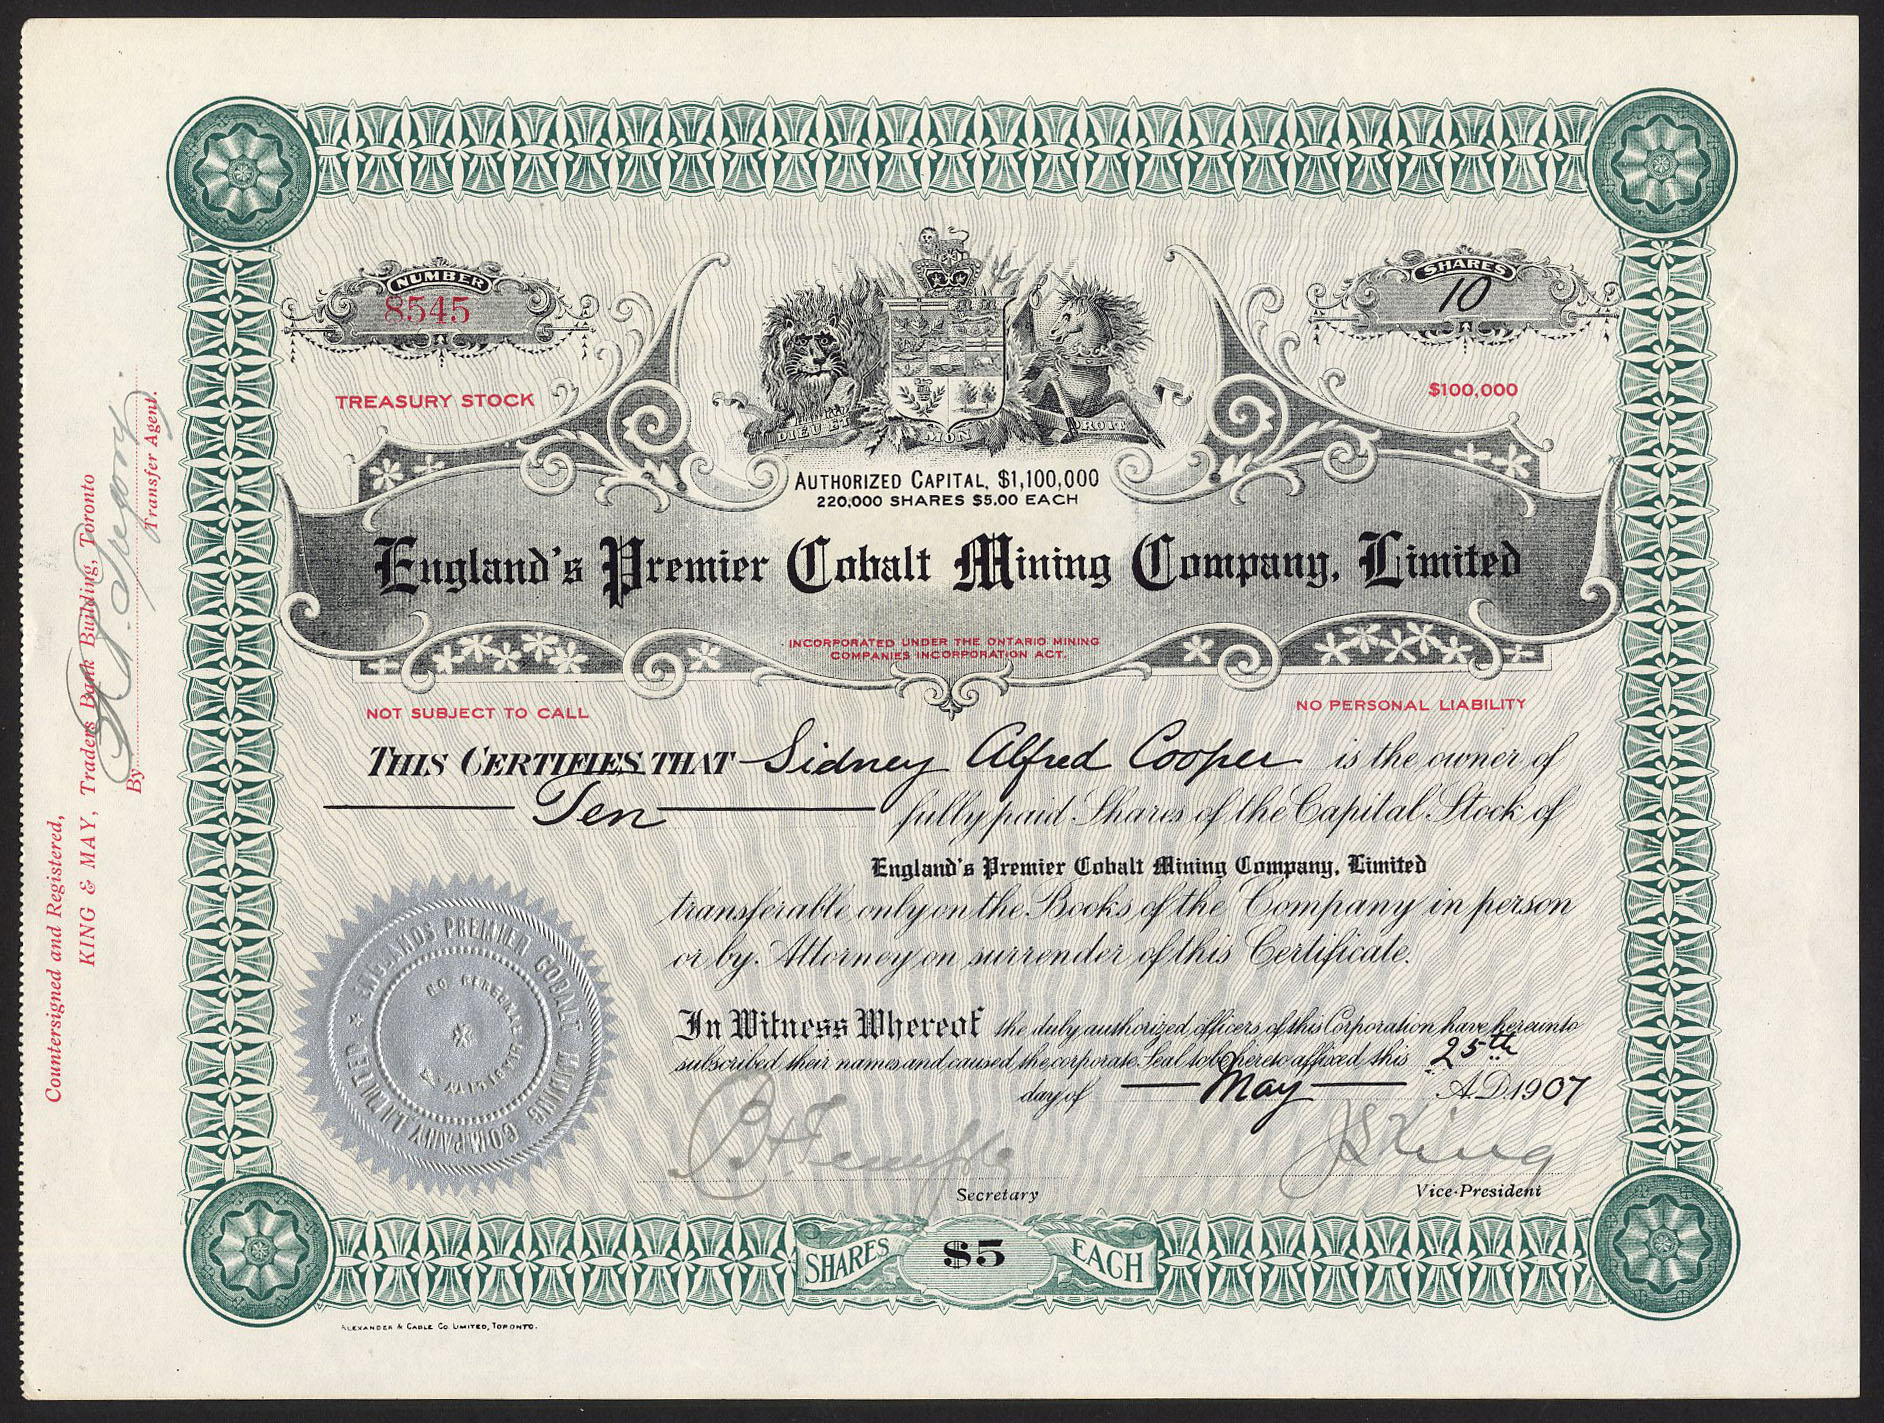 NUMBER
8545
SHARES
10
TREASURY STOCK
$100,000
DIEU ET MON DROIT
AUTHORIZED CAPITAL, $1,100,000
220,000 SHARES $5.00 EACH
England's Premier Cobalt Mining Company, Limited
INCORPORATED UNDER THE ONTARIO MINING
COMPANIES INCORPORATION ACT.
NOT SUBJECT TO CALL
NO PERSONAL LIABILITY
THIS CERTIFIES THAT Sidney Alfred Cooper is the owner of
Ten fully paid Shares of the Capital Stock of
England's Premier Cobalt Mining Company, Limited
transferable only on the Books of the Company in person
or by Attorney on surrender of this Certificate.
In Witness Whereof the duly authorized officers of this Corporation have hereunto
subscribed their names and caused the corporate Seal to be hereto affixed this 25th
day of May A.D. 1907
ENGLANDS PREMIER COBALT MINING COMPANY LIMITED
NO PERSONAL LIABILITY
Temple
J S King
Secretary
Vice-President
SHARES $5 EACH
ALEXANDER & CABLE CO. LIMITED, TORONTO.
Countersigned and Registered,
KING & MAY, Traders Bank Building, Toronto
By Gregory
Transfer Agent.